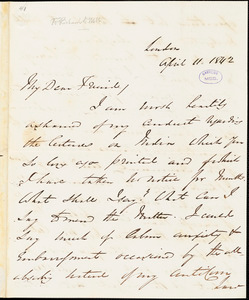 London
April 11. 1842
My Dear Friend,
I am most heartily
ashamed of my conduct regarding
the lectures on India which you
so long ago printed and
I have taken no notice for months
What shall I say? What can I
say to mend the matter. I could
say much of labour anxiety &
embarrassment occasioned by the all
absorbing of my